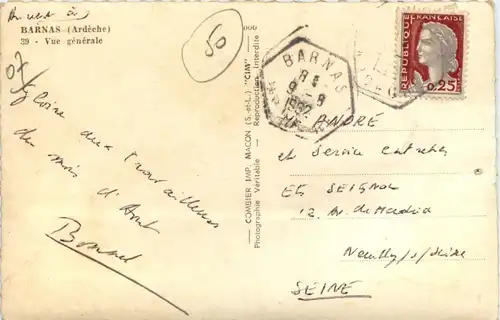 BARNAS (Ardèche)
39 - Vue générale
50
07
Gloire aux travailleurs
du mois d'Août
COMBIER IMP. MACON (S.-et-L.) "CIM"
Photographie Véritable - Reproduction Interdite
BARNAS
8 H
9 - 8
1962
RÉPUBLIQUE FRANÇAISE
0,25
ANDRÉ
et Service entretien
ETS SEIGNOL
12 Av. de Madrid
Neuilly s/Seine
SEINE